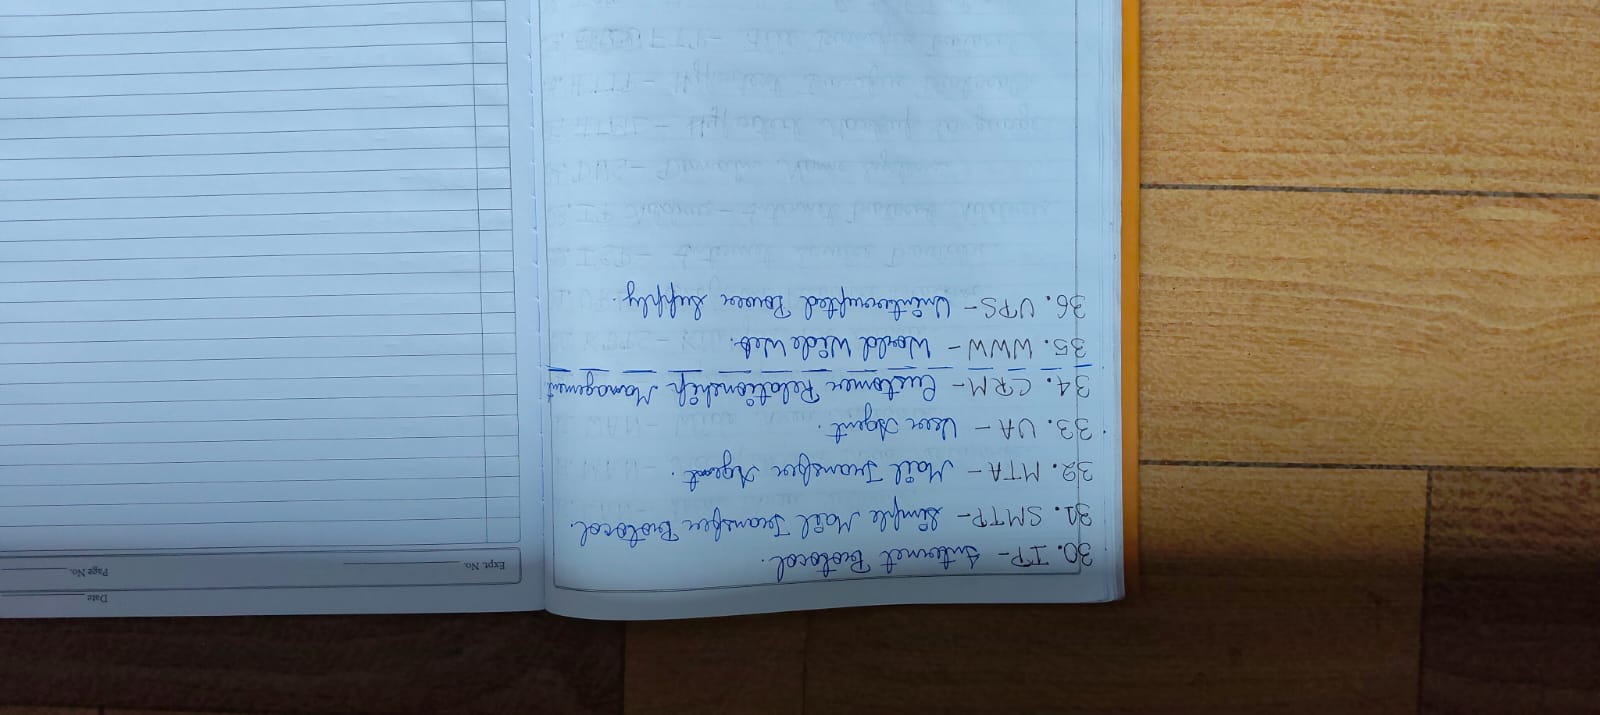 30. IP- Internet Protocol.
31. SMTP- Simple Mail Transfer Protocol.
32. MTA- Mail Transfer Agent.
33. UA- User Agent.
34. CRM- Customer Relationship Management
35. WWW- World Wide Web.
36. UPS- Uninterrupted Power Supply.
Date
Expt. No.
Page No.